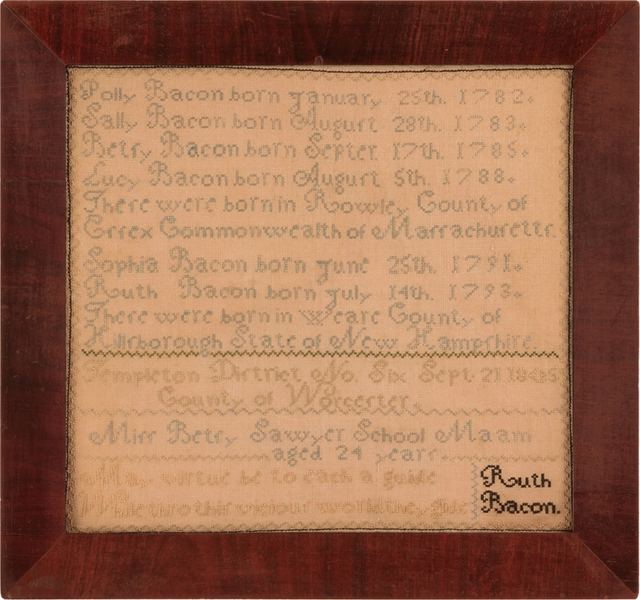 Polly Bacon born January 25th. 1782.
Sally Bacon born Auguſt 28th. 1783.
Betſy Bacon born Septer 17th. 1785.
Lucy Bacon born Auguſt 5th. 1788.
Theſe were born in Rowley County of
Eſſex Commonwealth of Maſſachuſettſ.
Sophia Bacon born June 25th. 1791.
Ruth Bacon born July 14th. 1793.
Theſe were born in Weare County of
Hillſborough State of New Hampſhire.
Templeton Diſtrict No. Six Sept 21
County of Worceſter.
Miſſ Betſy Sawyer School Maam
aged 24 yearſ
May virtue be to each a guide
While thro thiſ viciouſ world they glide
Ruth
Bacon.